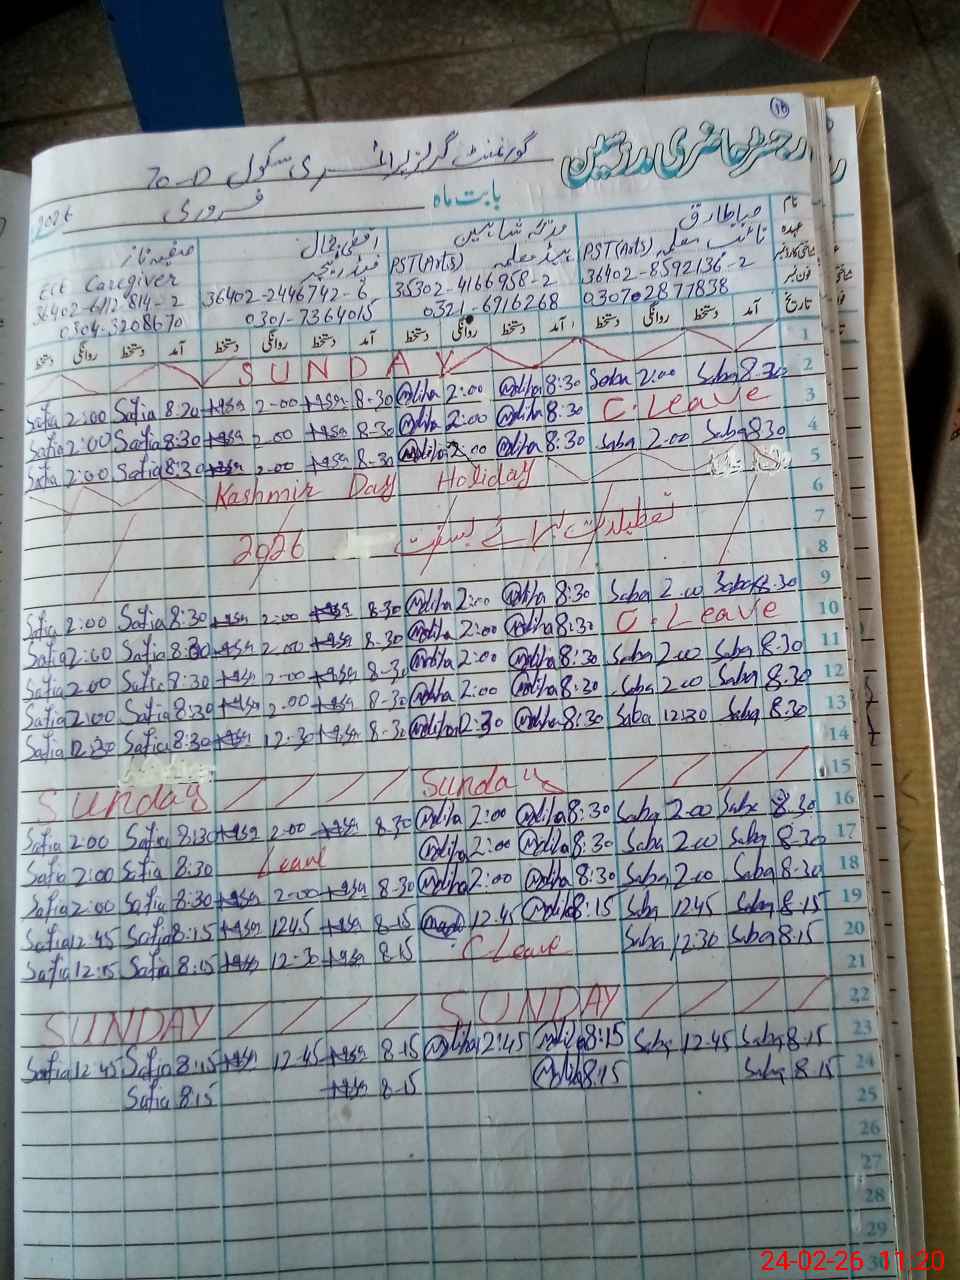 16
رجسٹر حاضری مدرسین
گورنمنٹ گرلز پرائمری سکول 70-D
بابت ماہ فروری 2026
نام صباطارق مدیحہ شاہین اقصٰی جمال صفیہ ناز
عہدہ
PST(Arts) PST(Arts) ہیڈ معلمہ ECE Caregiver
36402-8592136-2 35302-4166958-2 36402-2446742-6 36402-6112814-2
030702877838 0321-6916268 0301-7364015 0304-3208670
تاریخ آمد دستخط روانگی دستخط آمد دستخط روانگی دستخط آمد دستخط روانگی دستخط آمد دستخط روانگی دستخط
SUNDAY 1
Safia 2:00 Safia 8:30 2-00 8-30 Mdiha 2:00 Mdiha 8:30 Saba 2:00 Saba 8-30 2
Safia 2:00 Safia 8:30 2-00 8-30 Mdiha 2:00 Mdiha 8:30 C.Leave 3
Safia 2:00 Safia 8:30 2-00 8-30 Mdiha 2:00 Mdiha 8:30 Saba 2-00 Saba 8.30 4
Kashmir Day Holiday 5
6
2026 تعطیلات برائے بسنت 7
8
Safia 2:00 Safia 8:30 2:00 8-30 Mdiha 2:00 Mdiha 8:30 Saba 2.00 Saba 8.30 9
Safia 2:00 Safia 8:30 2-00 8-30 Mdiha 2:00 Mdiha 8:30 C.Leave 10
Safia 2:00 Safia 8:30 2-00 8-30 Mdiha 2:00 Mdiha 8:30 Saba 2.00 Saba 8.30 11
Safia 2:00 Safia 8:30 2.00 8-30 Mdiha 2:00 Mdiha 8:30 Saba 2.00 Saba 8.30 12
Safia 12:30 Safia 8:30 12-30 8-30 Mdiha 12:30 Mdiha 8:30 Saba 12:30 Saba 8.30 13
14
Sunday Sunday 15
Safia 2:00 Safia 8:30 2-00 8.30 Mdiha 2:00 Mdiha 8:30 Saba 2.00 Saba 8.30 16
Safia 2:00 Safia 8:30 Leave Mdiha 2:00 Mdiha 8:30 Saba 2.00 Saba 8.30 17
Safia 2:00 Safia 8:30 2-00 8.30 Mdiha 2:00 Mdiha 8:30 Saba 2.00 Saba 8.30 18
Safia 12:45 Safia 8:15 12.45 8-15 12.45 Mdiha 8:15 Saba 12.45 Saba 8.15 19
Safia 12:15 Safia 8:15 12-30 8.15 C Leave Saba 12.30 Saba 8.15 20
21
SUNDAY SUNDAY 22
Safia 12:45 Safia 8:15 12-45 8-15 Mdiha 12:45 Mdiha 8:15 Saba 12.45 Saba 8.15 23
Safia 8:15 8-15 Mdiha 8:15 Saba 8.15 24
25
26
27
28
29
30
24-02-26 11:20